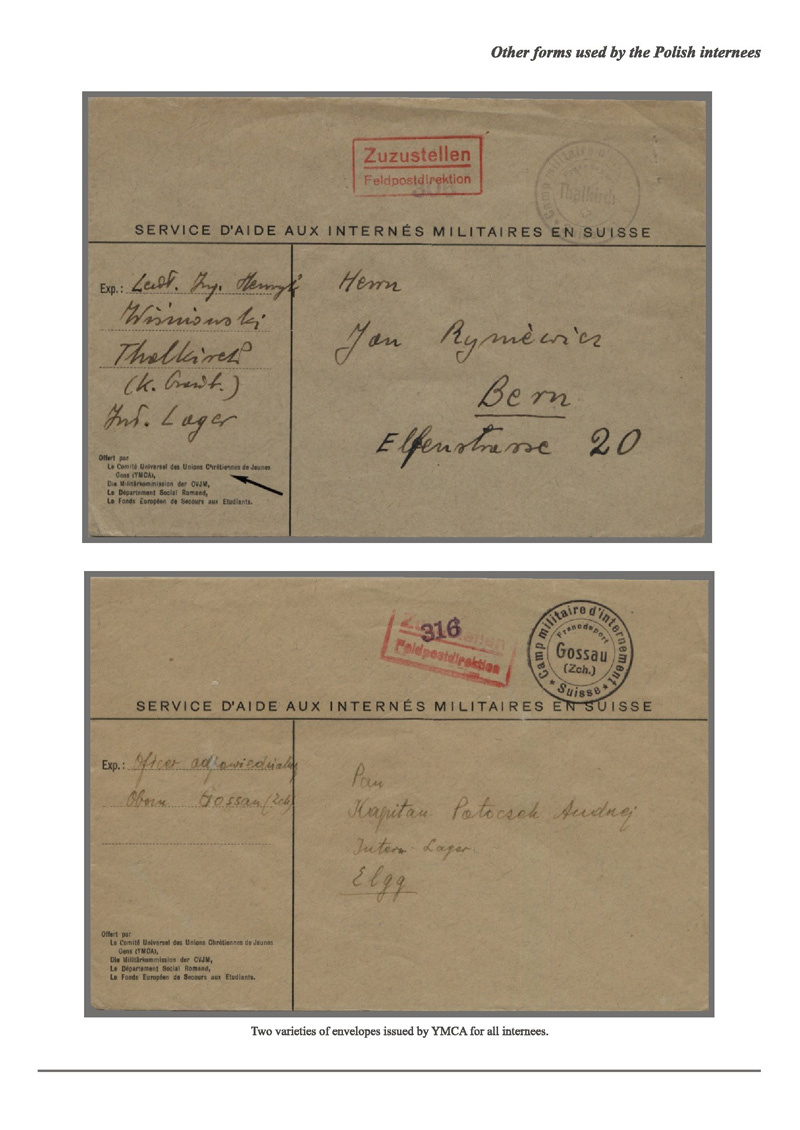 Other forms used by the Polish internees
Zuzustellen
Feldpostdirektion
Camp militaire
Thalkirch
SERVICE D'AIDE AUX INTERNÉS MILITAIRES EN SUISSE
Exp.: Ing. Henryk
Wiśniowski
Thalkirch
(K. Graub.)
Int. Lager
Herrn
Jan Ryniewicz
Bern
Elfenstrasse 20
Offert par
Le Comité Universel des Unions Chrétiennes de Jeunes
Gens (YMCA),
Die Militärkommission der CVJM,
Le Département Social Romand,
Le Fonds Européen de Secours aux Etudiants.
Zuzustellen
316
Feldpostdirektion
Camp militaire d'internement
Francdeport
Gossau
(Zch.)
Suisse
SERVICE D'AIDE AUX INTERNÉS MILITAIRES EN SUISSE
Exp.: Oficer odpowiedzialny
Obozu Gossau (Zch)
Pan
Kapitan Potoczek Andrzej
Intern. Lager
Elgg
Offert par
Le Comité Universel des Unions Chrétiennes de Jeunes
Gens (YMCA),
Die Militärkommission der CVJM,
Le Département Social Romand,
Le Fonds Européen de Secours aux Etudiants.
Two varieties of envelopes issued by YMCA for all internees.